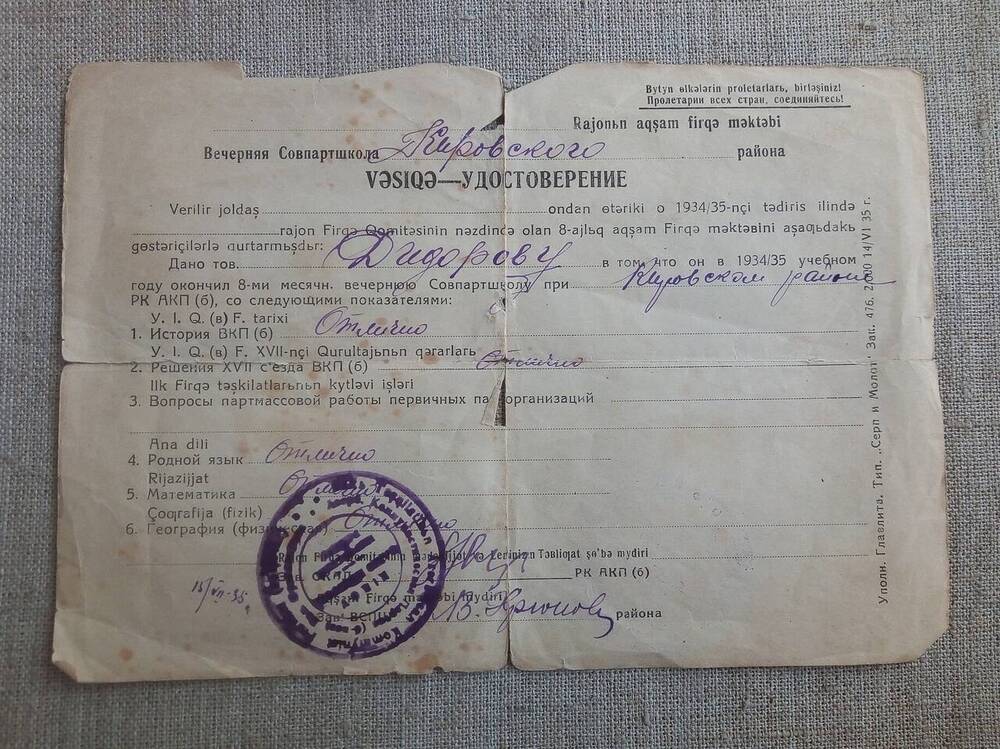 Bytyn ɵlkələrin proletarları, birləşiniz!
Пролетарии всех стран, соединяйтесь!
Rajonьn aqşam firqə məktəbi
Вечерняя Совпартшкола Кировского района
VƏSIQƏ—УДОСТОВЕРЕНИЕ
Verilir joldaş ondan ɵtəriki o 1934/35-nçi tədiris ilində
rajon Firqə Qomitəsinin nəzdində olan 8-ajlьq aqşam Firqə məktəbini aşaqьdakь
gɵstəriçilərlə qurtarmışdьr:
Дано тов. Дидорову в том, что он в 1934/35 учебном
году окончил 8-ми месячн. вечернюю Совпартшколу при Кировском района
РК АКП (б), со следующими показателями:
У. I. Q. (в) F. tarixi
1. История ВКП (б) Отлично
У. I. Q. (в) F. XVII-nçi Qurultajьnьn qərarlarь
2. Решения XVII с'езда ВКП (б) Отлично
Ilk Firqə təşkilatlarьnьn kytləvi işləri
3. Вопросы партмассовой работы первичных парторганизаций
Ana dili
4. Родной язык Отлично
Rijazijjat
5. Математика Отлично
Çoqrafija (fizik)
6. География (физическая) Отлично
Rajon Firqə Qomitəsinin mədənijjət və Lerinizm Təbliqat şo'bə mydiri
Зав. ОКПЛ РК АКП (б)
Aqşam Firqə məktəbi mydiri
Зав. ВСПШ района
15/VII-35 г.
Уполн. Главлита. Тип. „Серп и Молот." Зак. 476. 2,000 14/VI 35 г.